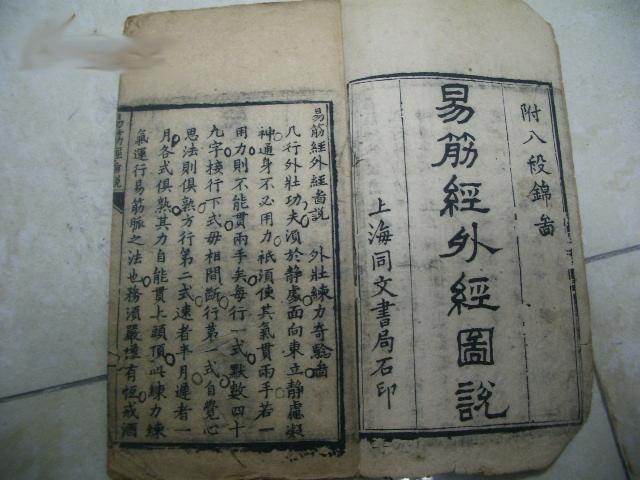 附八段錦啚
易筋經外經圖說
上海同文書局石印
易筋經外經啚說　外壯練力奇驗啚
凡行外壯功夫須於静處面向東立静慮凝
神通身不必用力衹須使其氣貫兩手若一
用力則不能貫兩手矣每行一式默數四十
九字接行下式毋相間断行第一式自覺心
思法則俱熟方行第二式速者半月遲者一
月各式俱熟其力自能貫上頭頂此練力練
氣運行易筋脈之法也務須嚴謹有恒戒酒